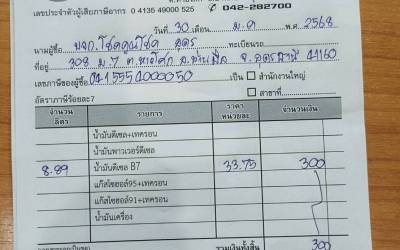 เลขประจำตัวผู้เสียภาษีอากร 0 4135 49000 525 042-282700
วันที่ 30 เดือน ม.ค พ.ศ. 2568
นามผู้ซื้อ หจก.โชคคูณโชค อุดร ทะเบียนรถ
ที่อยู่ 308 ม.7 ต. อ.บ้านผือ จ.อุดรธานี 41160
เลขภาษีของผู้ซื้อ เป็น สำนักงานใหญ่
อัตราภาษีร้อยละ7 สาขาที่
จำนวนลิตร รายการ ราคาหน่วยละ จำนวนเงิน
น้ำมันดีเซล+เทครอน
น้ำมันพาวเวอร์ดีเซล
8.89 น้ำมันดีเซล B7 33.75 300
แก๊สโซฮอล์95+เทครอน
แก๊สโซฮอล์91+เทครอน
น้ำมันเครื่อง
รวมเงินทั้งสิ้น 300